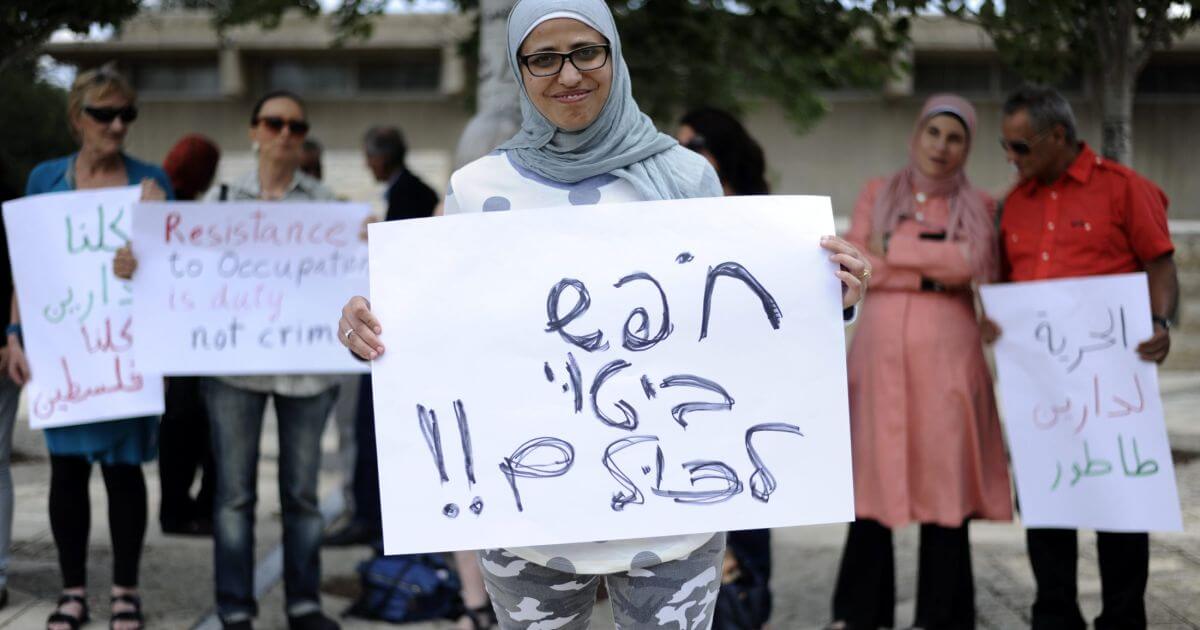 كلنا
دارين
كلنا
فلسطين
Resistance
to Occupation
is duty
not crim
חֹפש
ביטוי
לכולם!!
الحرية
لدارين
طاطور